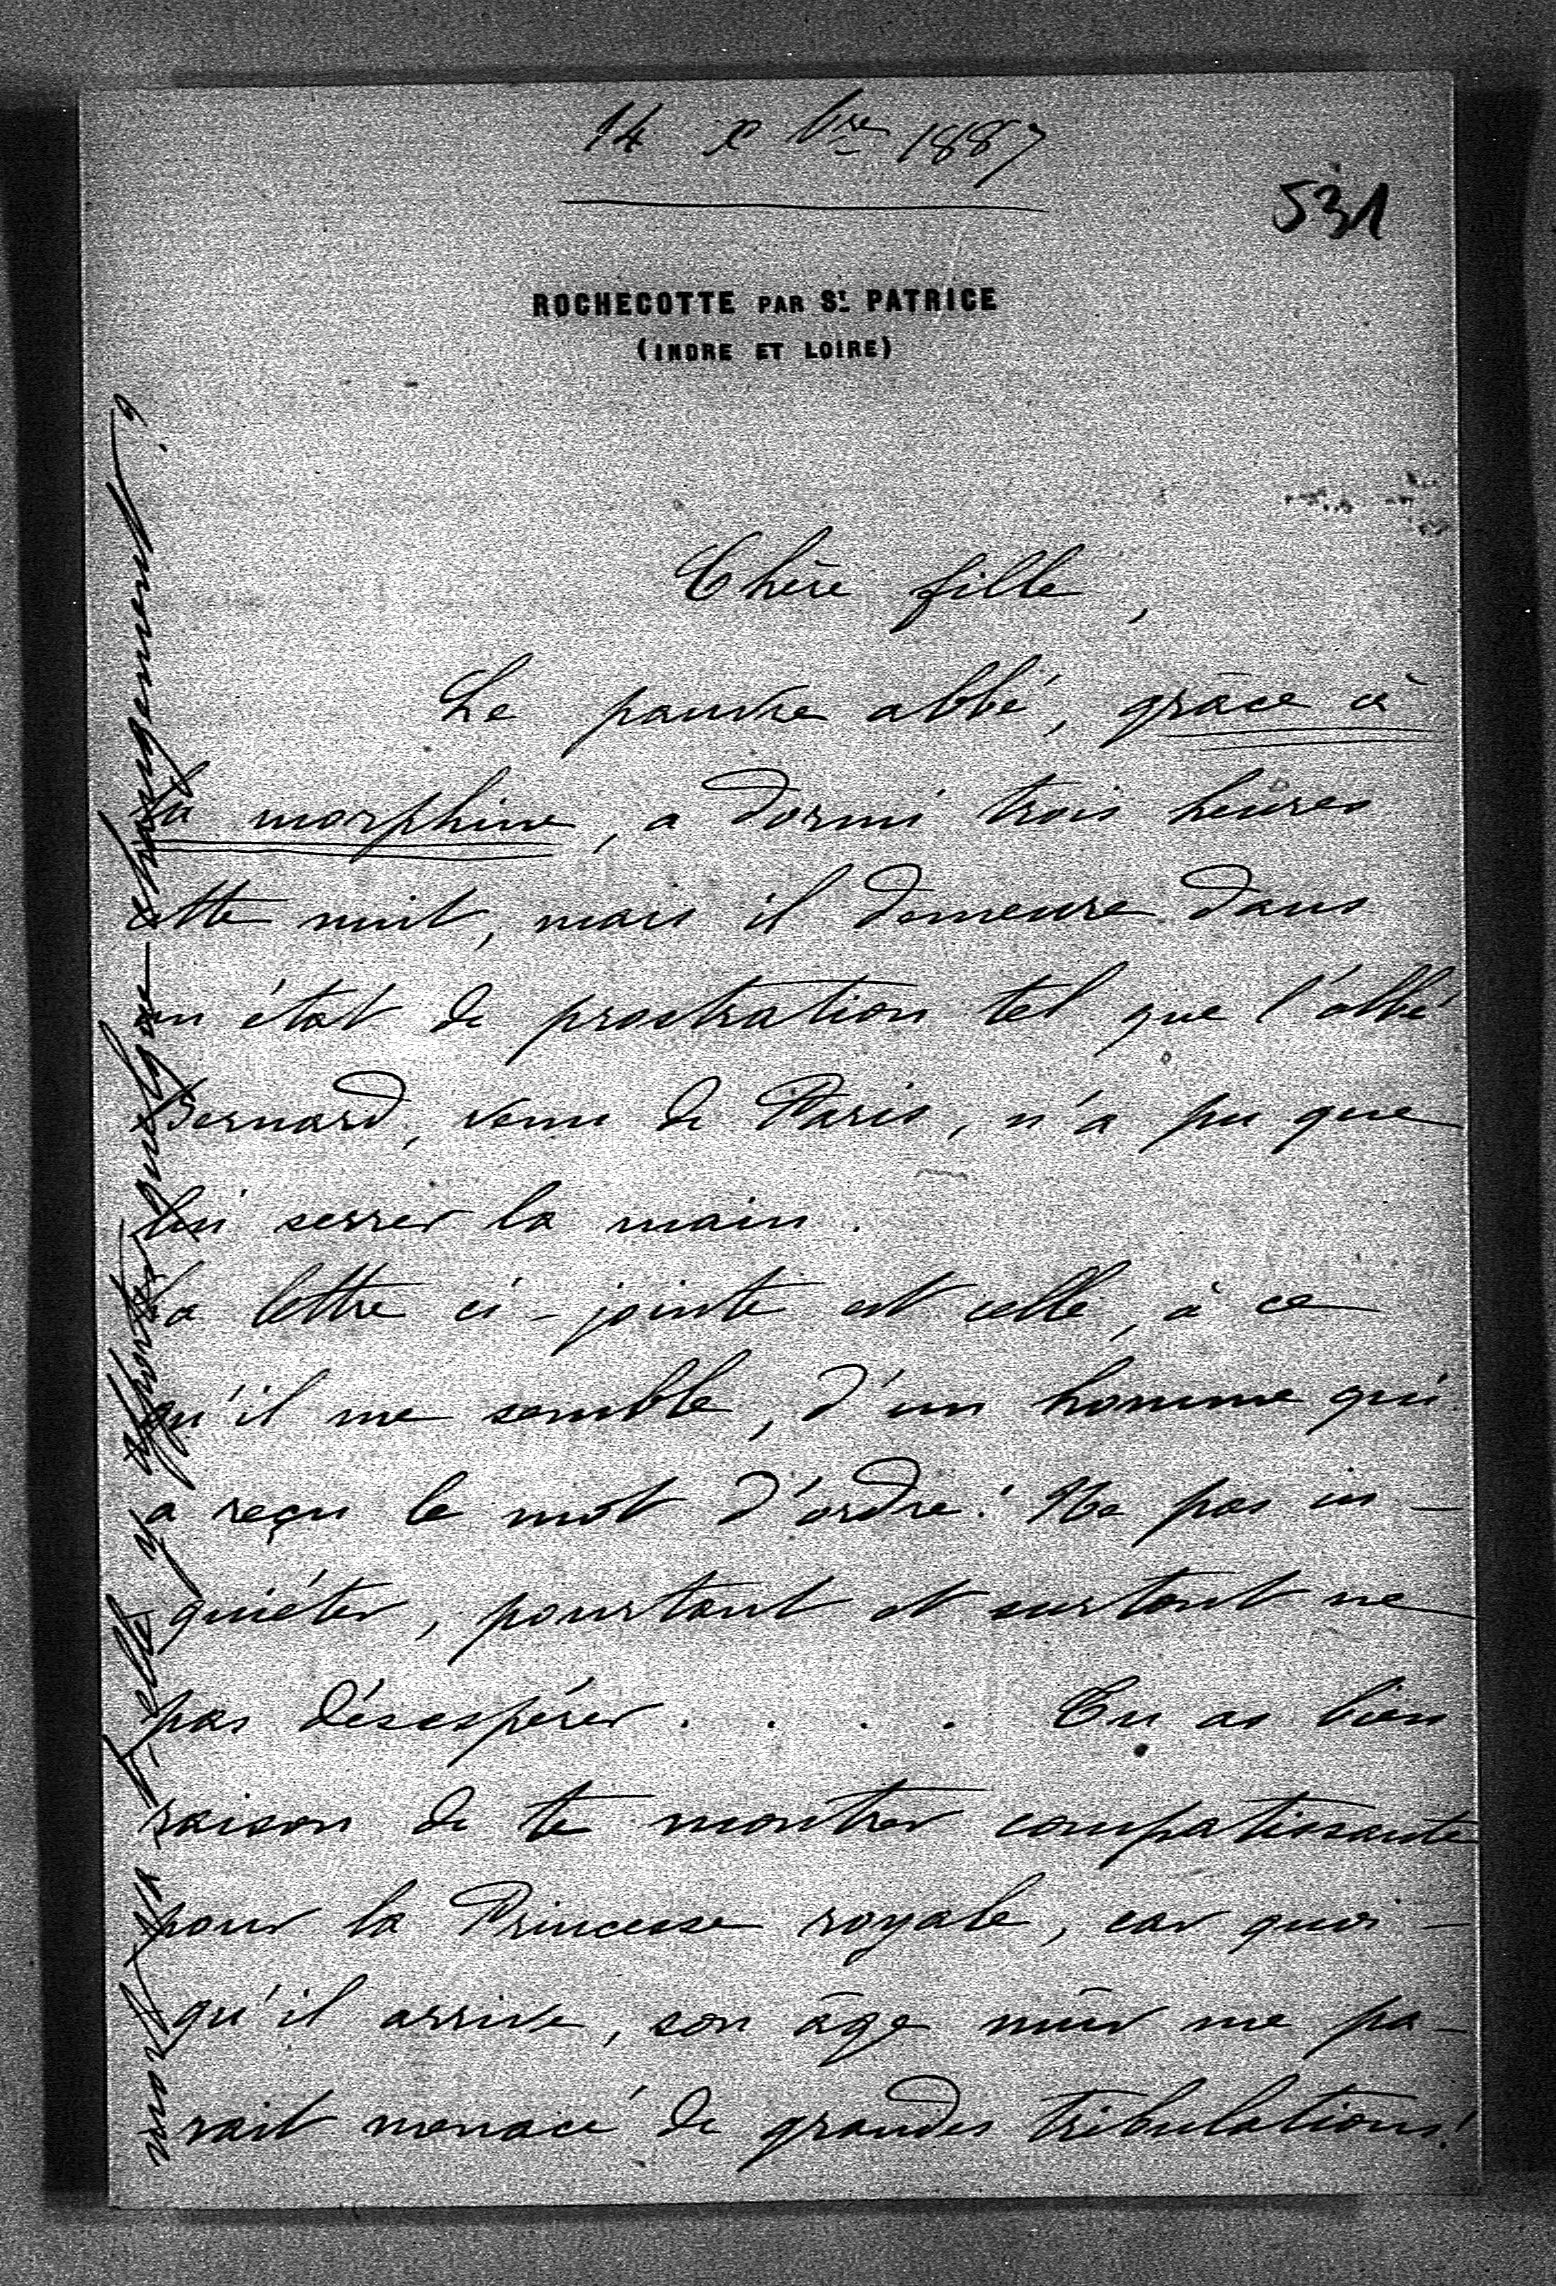 14 Xbre 1887
531
ROCHECOTTE PAR St. PATRICE
(INDRE ET LOIRE)
Chère fille,
Le pauvre abbé, grâce à
la morphine, a dormi trois heures
cette nuit, mais il demeure dans
un état de prostration tel que l'abbé
Bernard, venu de Paris, n'a pu que
lui serrer la main.
La lettre ci-jointe est celle, à ce
qu'il me semble, d'un homme qui
a reçu le mot d'ordre: Ne pas in-
quiéter, pourtant et surtout ne
pas désespérer. . . . . Tu as bien
raison de te montrer compatissante
pour la Princesse royale, car quoi-
qu'il arrive, son âge mûr me pa-
rait menacé de grandes tribulations!
mort va-t-elle y apporter quelque changement?